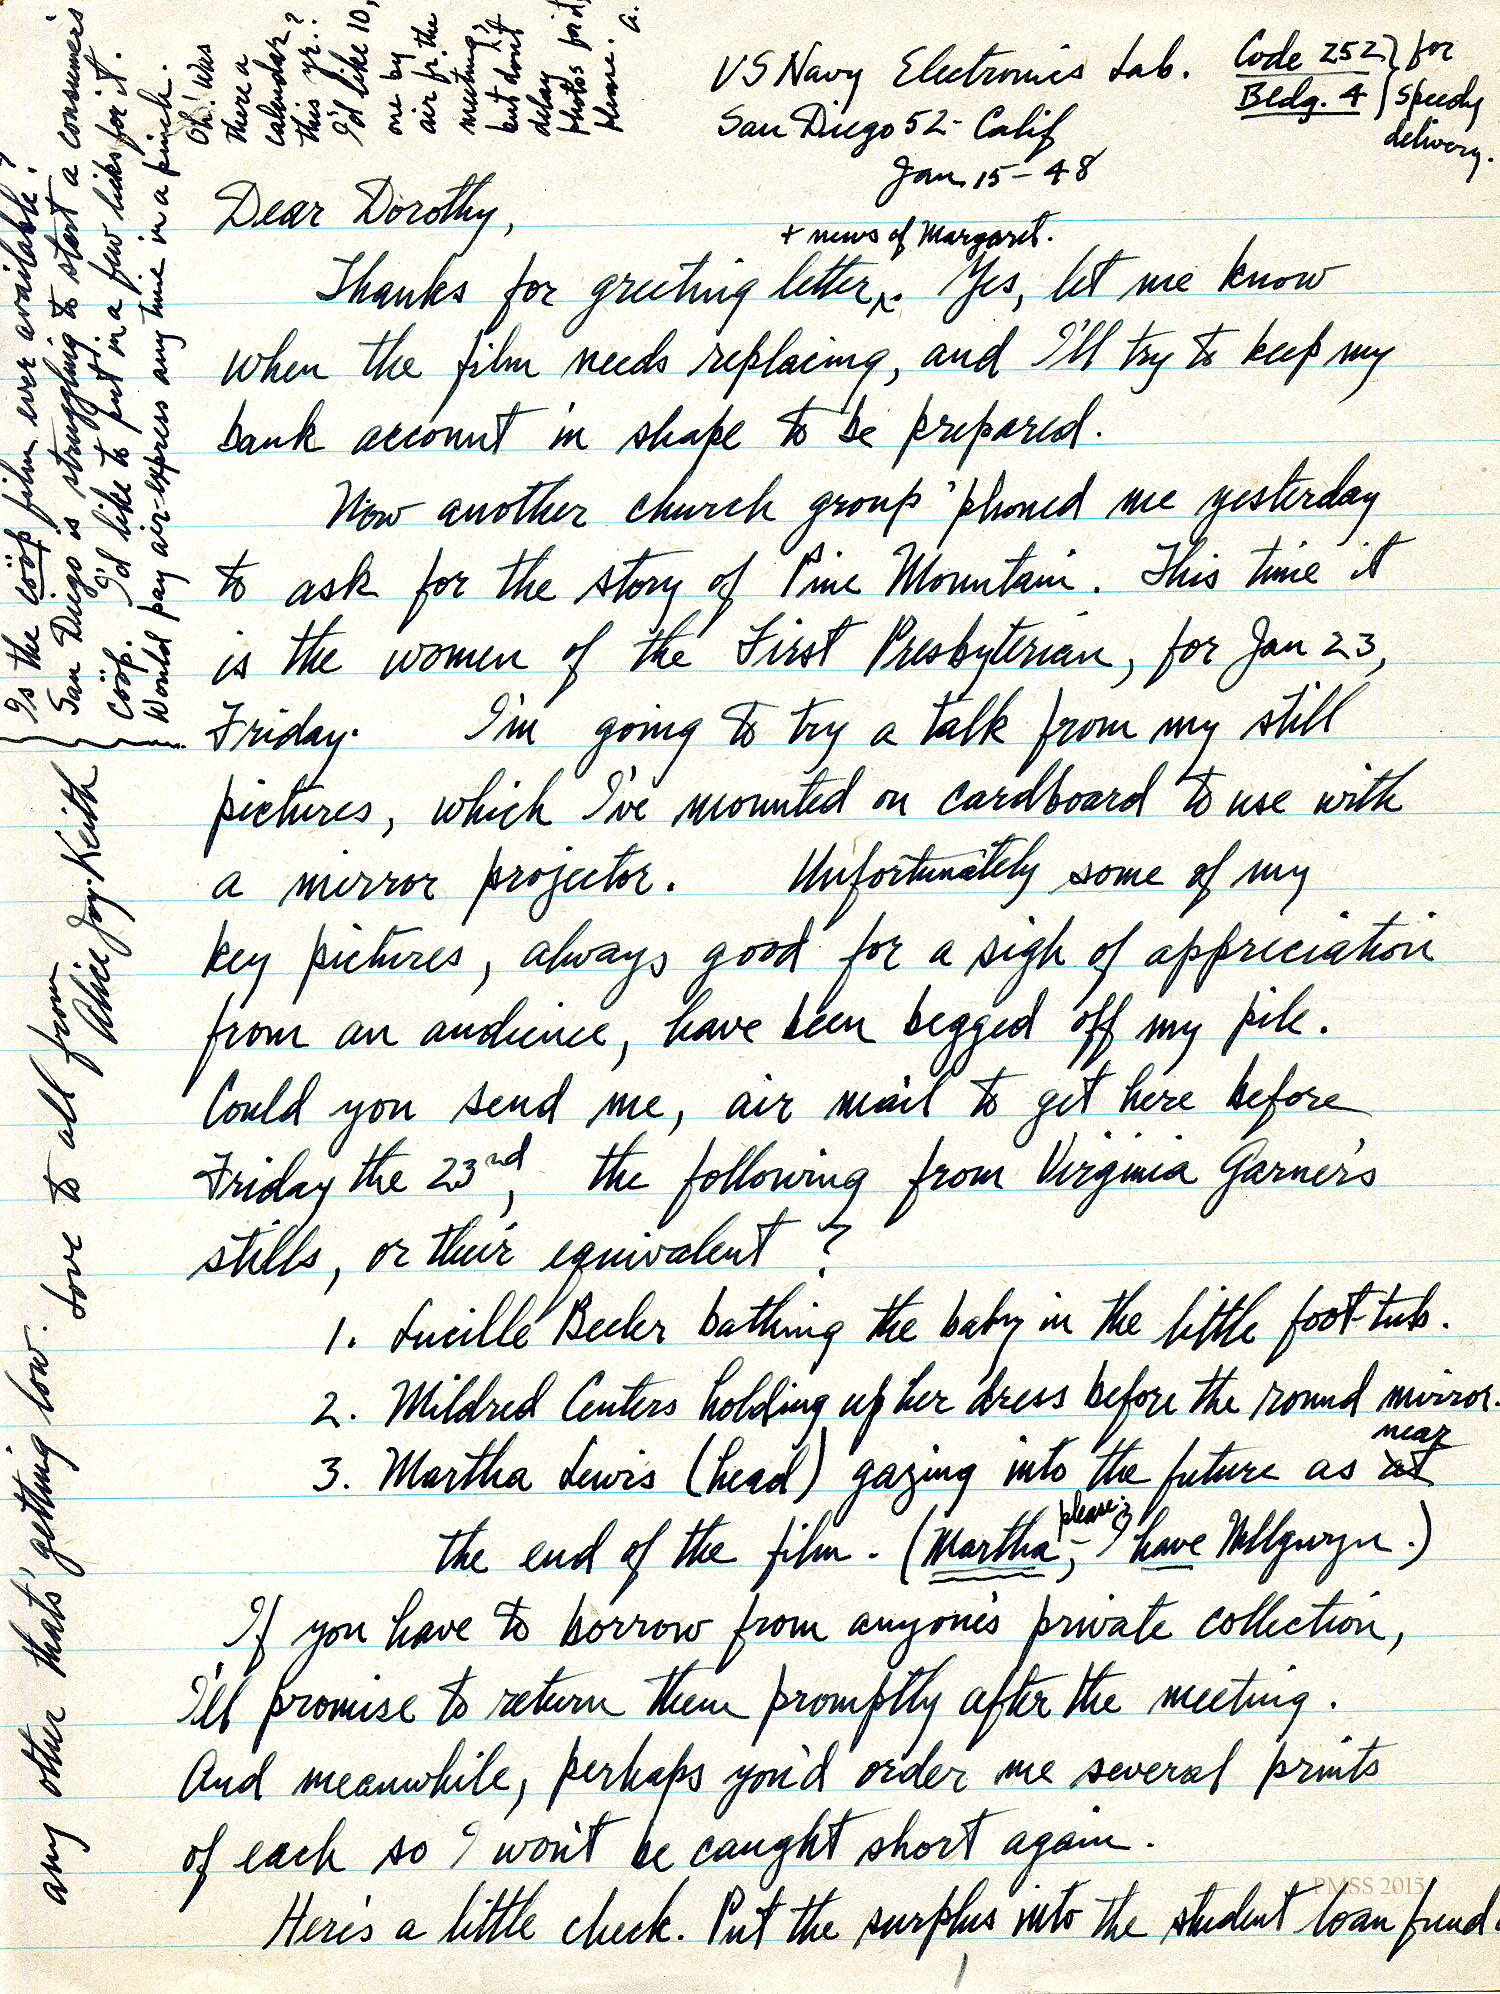 US Navy Electronics Lab.
San Diego 52 - Calif
Jan. 15 - 48
Code 252 } for
Bldg. 4 } speedy
delivery.
Dear Dorothy,
+ news of Margaret.
Thanks for greeting letter ^. Yes, let me know
when the film needs replacing, and I'll try to keep my
bank account in shape to be prepared.
Now another church group 'phoned me yesterday
to ask for the story of Pine Mountain. This time it
is the women of the First Presbyterian, for Jan 23,
Friday. I'm going to try a talk from my still
pictures, which I've mounted on cardboard to use with
a mirror projector. Unfortunately some of my
key pictures, always good for a sigh of appreciation
from an audience, have been begged off my pile.
Could you send me, air mail to get here before
Friday the 23nd, the following from Virginia Garner's
stills, or their equivalent?
1. Lucille Beeler bathing the baby in the little foot-tub.
2. Mildred Centers holding up her dress before the round mirror.
near
3. Martha Lewis (head) gazing into the future as at
please;
the end of the film. (Martha, - I have Mllgwyn.)
If you have to borrow from anyone's private collection,
I'll promise to return them promptly after the meeting.
And meanwhile, perhaps you'd order me several prints
of each so I won't be caught short again.
Here's a little check. Put the surplus into the student loan fund.
any other thats' getting low. Love to all from
Alice Joy Keith
Is the cöop film ever available?
San Diego is struggling to start a consumers'
cöop. I'd like to put in a few licks for it.
Would pay air-express any time in a pinch.
Oh! Was
there a
calendar
this yr.?
I'd like 10,
one by
air fr. the
meeting,
but don't
delay
photos for it,
please.
a.
PMSS 2015